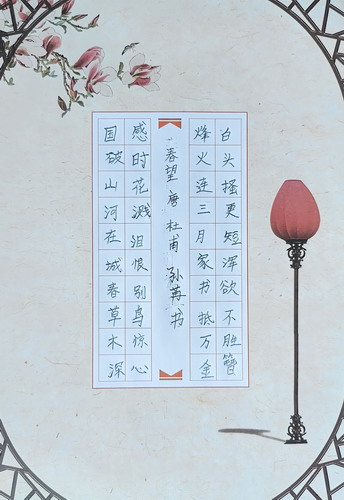 国破山河在城春草木深
感时花溅泪恨别鸟惊心
春望 唐 杜甫 孙苒书
烽火连三月家书抵万金
白头搔更短浑欲不胜簪